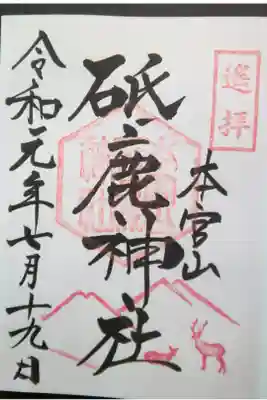 巡拝
本宮山
砥鹿神社
令和元年七月十九日